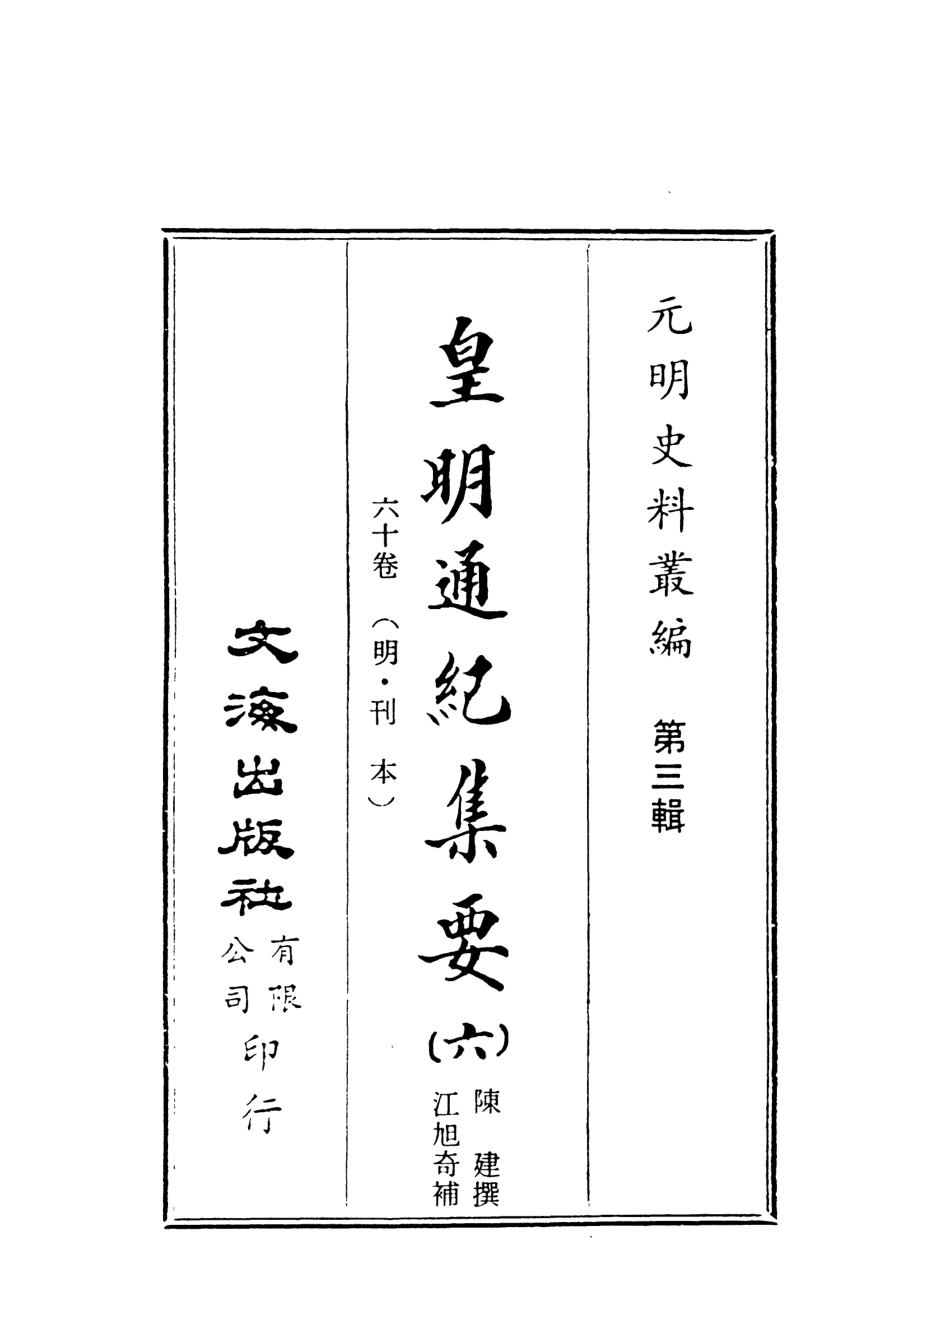 元明史料叢編　第三輯
皇明通紀集要(六)
陳　建撰
江旭奇補
六十卷（明・刊　本）
文海出版社
有限
公司
印行